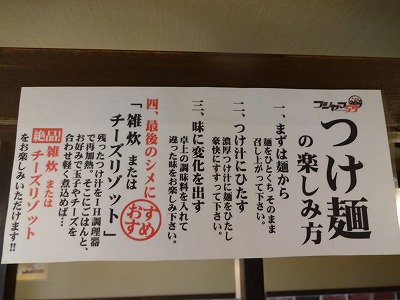 フジヤマ55
つけ麺
の楽しみ方
一、まずは麺から
麺をひとくちそのまま
召し上がって下さい。
二、つけ汁にひたす
濃厚つけ汁に麺をひたし
豪快にすすって下さい。
三、味に変化を出す
卓上の調味料を入れて
違った味をお楽しみ下さい。
四、最後のシメに
おすすめ
「雑炊 または
チーズリゾット」
残ったつけ汁をIH調理器
で再加熱。そこにごはんと、
お好みで玉子やチーズを
合わせ軽く煮込めば…
絶品!雑炊 または
チーズリゾット
をお楽しみいただけます!!